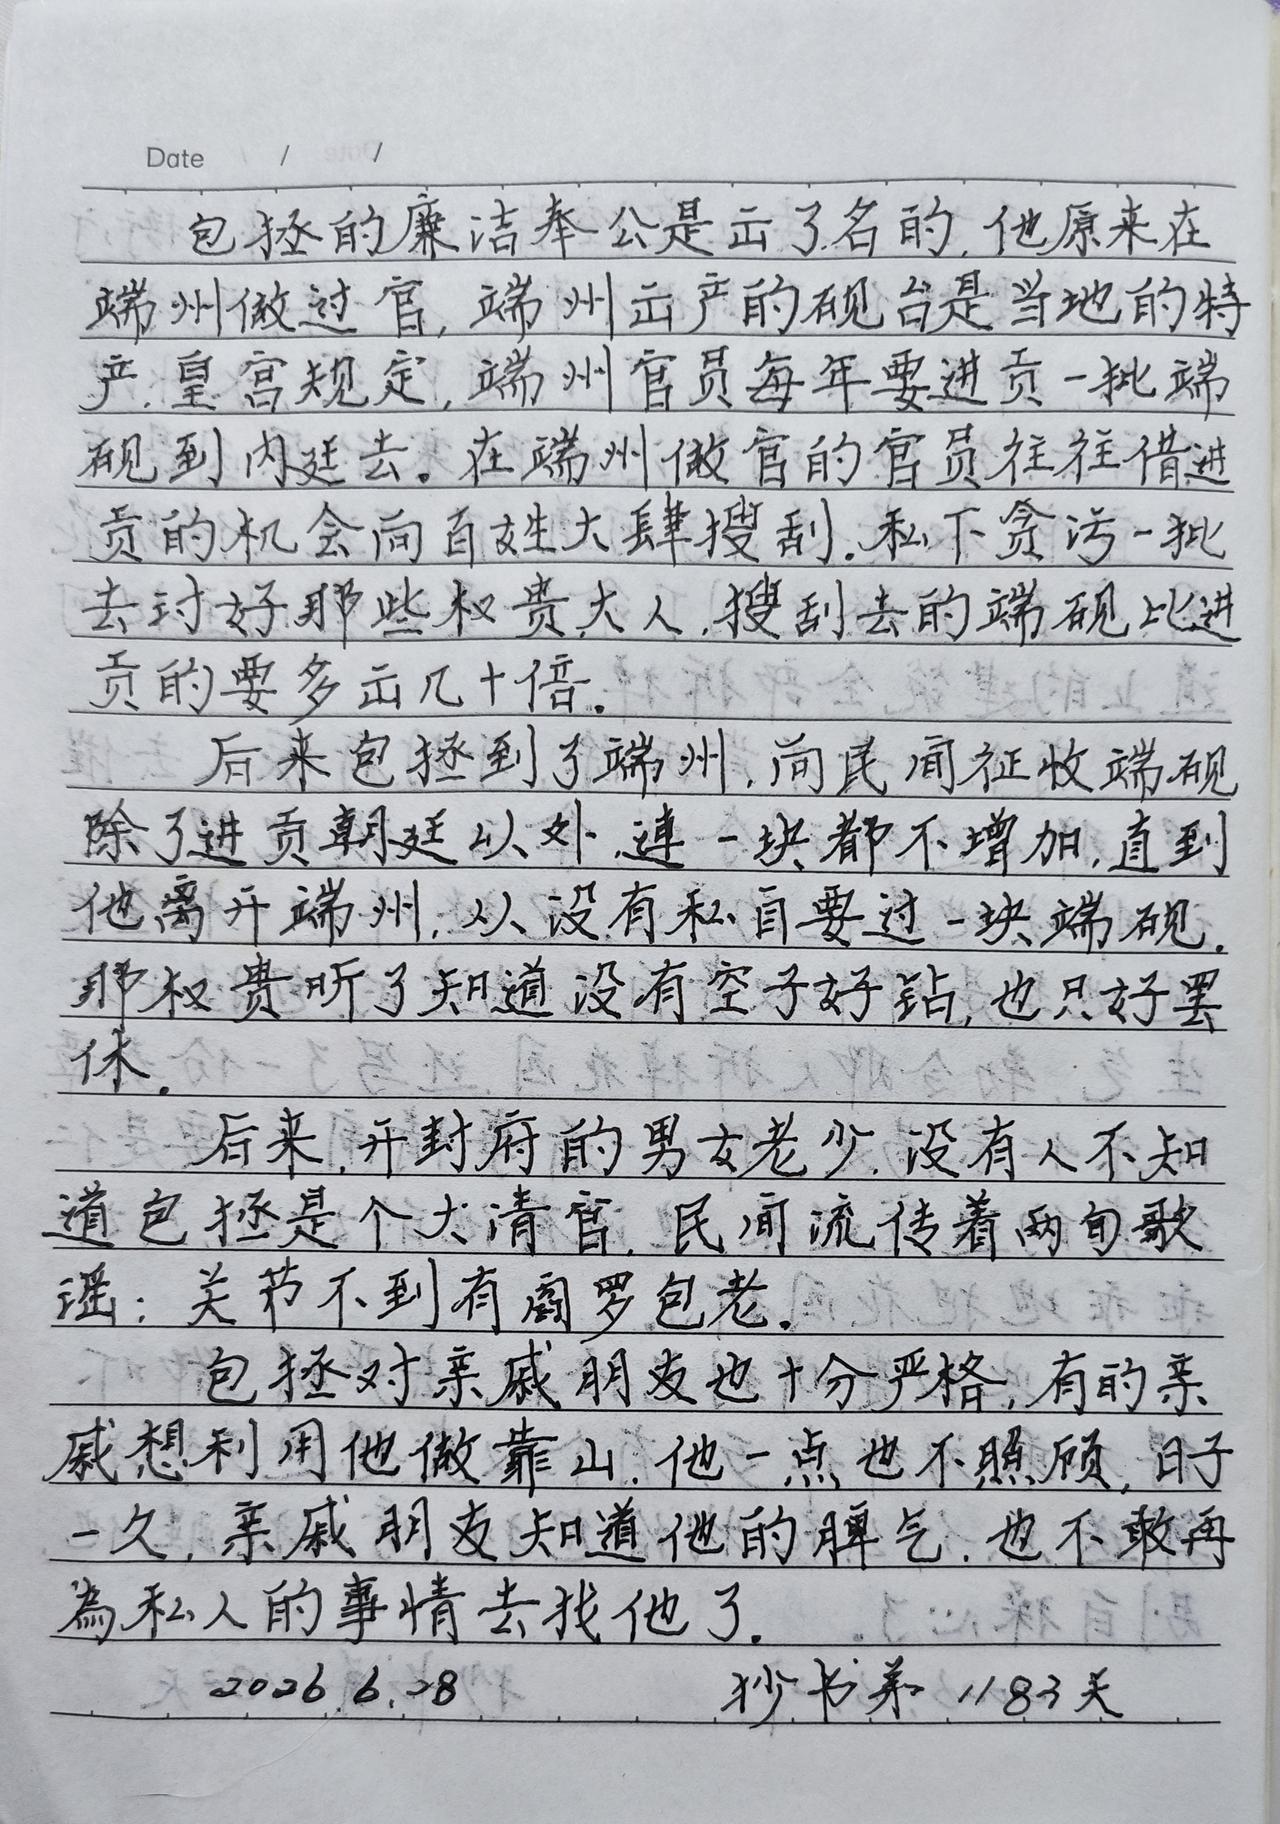 Date / /
包拯的廉洁奉公是出了名的，他原来在
端州做过官，端州出产的砚台是当地的特
产，皇宫规定，端州官员每年要进贡一批端
砚到内廷去。在端州做官的官员往往借进
贡的机会向百姓大肆搜刮。私下贪污一批
去讨好那些权贵大人，搜刮去的端砚比进
贡的要多出几十倍。
后来包拯到了端州，向民间征收端砚
除了进贡朝廷以外，連一块都不增加，直到
他离开端州，从没有私自要过一块端砚。
那权贵听了知道没有空子好钻，也只好罢
休。
后来，开封府的男女老少，没有人不知
道包拯是个大清官，民间流传着两句歌
谣：关节不到有阎罗包老。
包拯对亲戚朋友也十分严格，有的亲
戚想利用他做靠山，他一点也不照顾，日子
一久，亲戚朋友知道他的脾气，也不敢再
為私人的事情去找他了。
2026.6.28 抄书第1183天